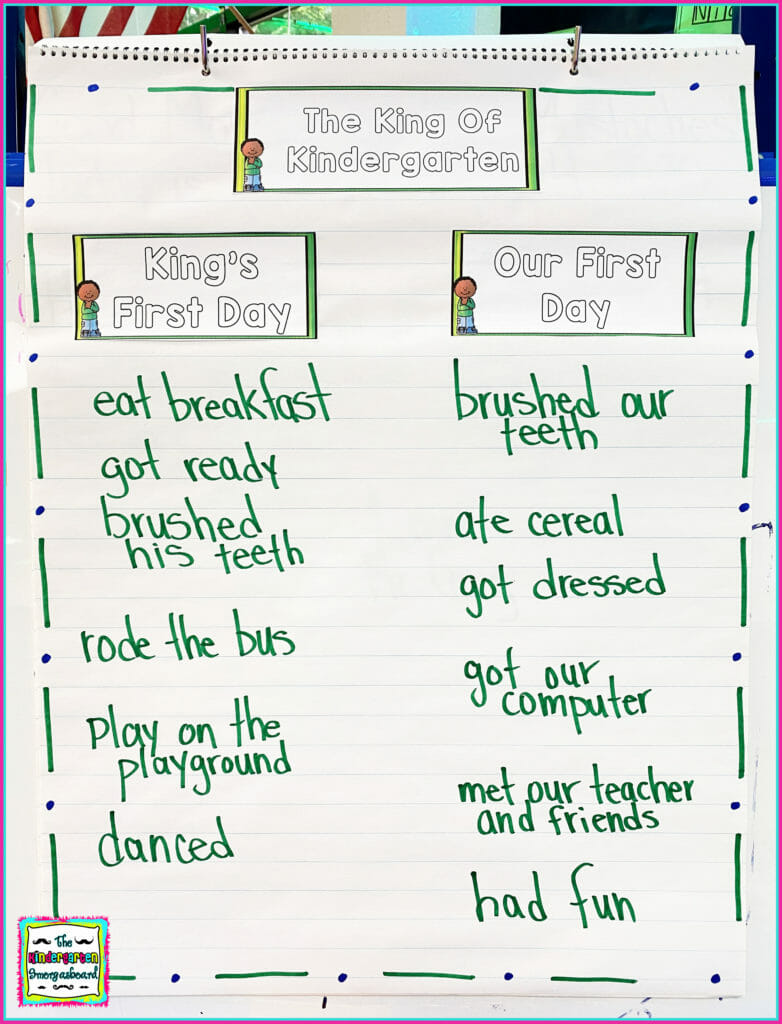 NITO
The King Of
Kindergarten
King's
First Day
eat breakfast
got ready
brushed
his teeth
rode the bus
play on the
playground
danced
Our First
Day
brushed our
teeth
ate cereal
got dressed
got our
computer
met our teacher
and friends
had fun
The
Kindergarten
Smorgasboard